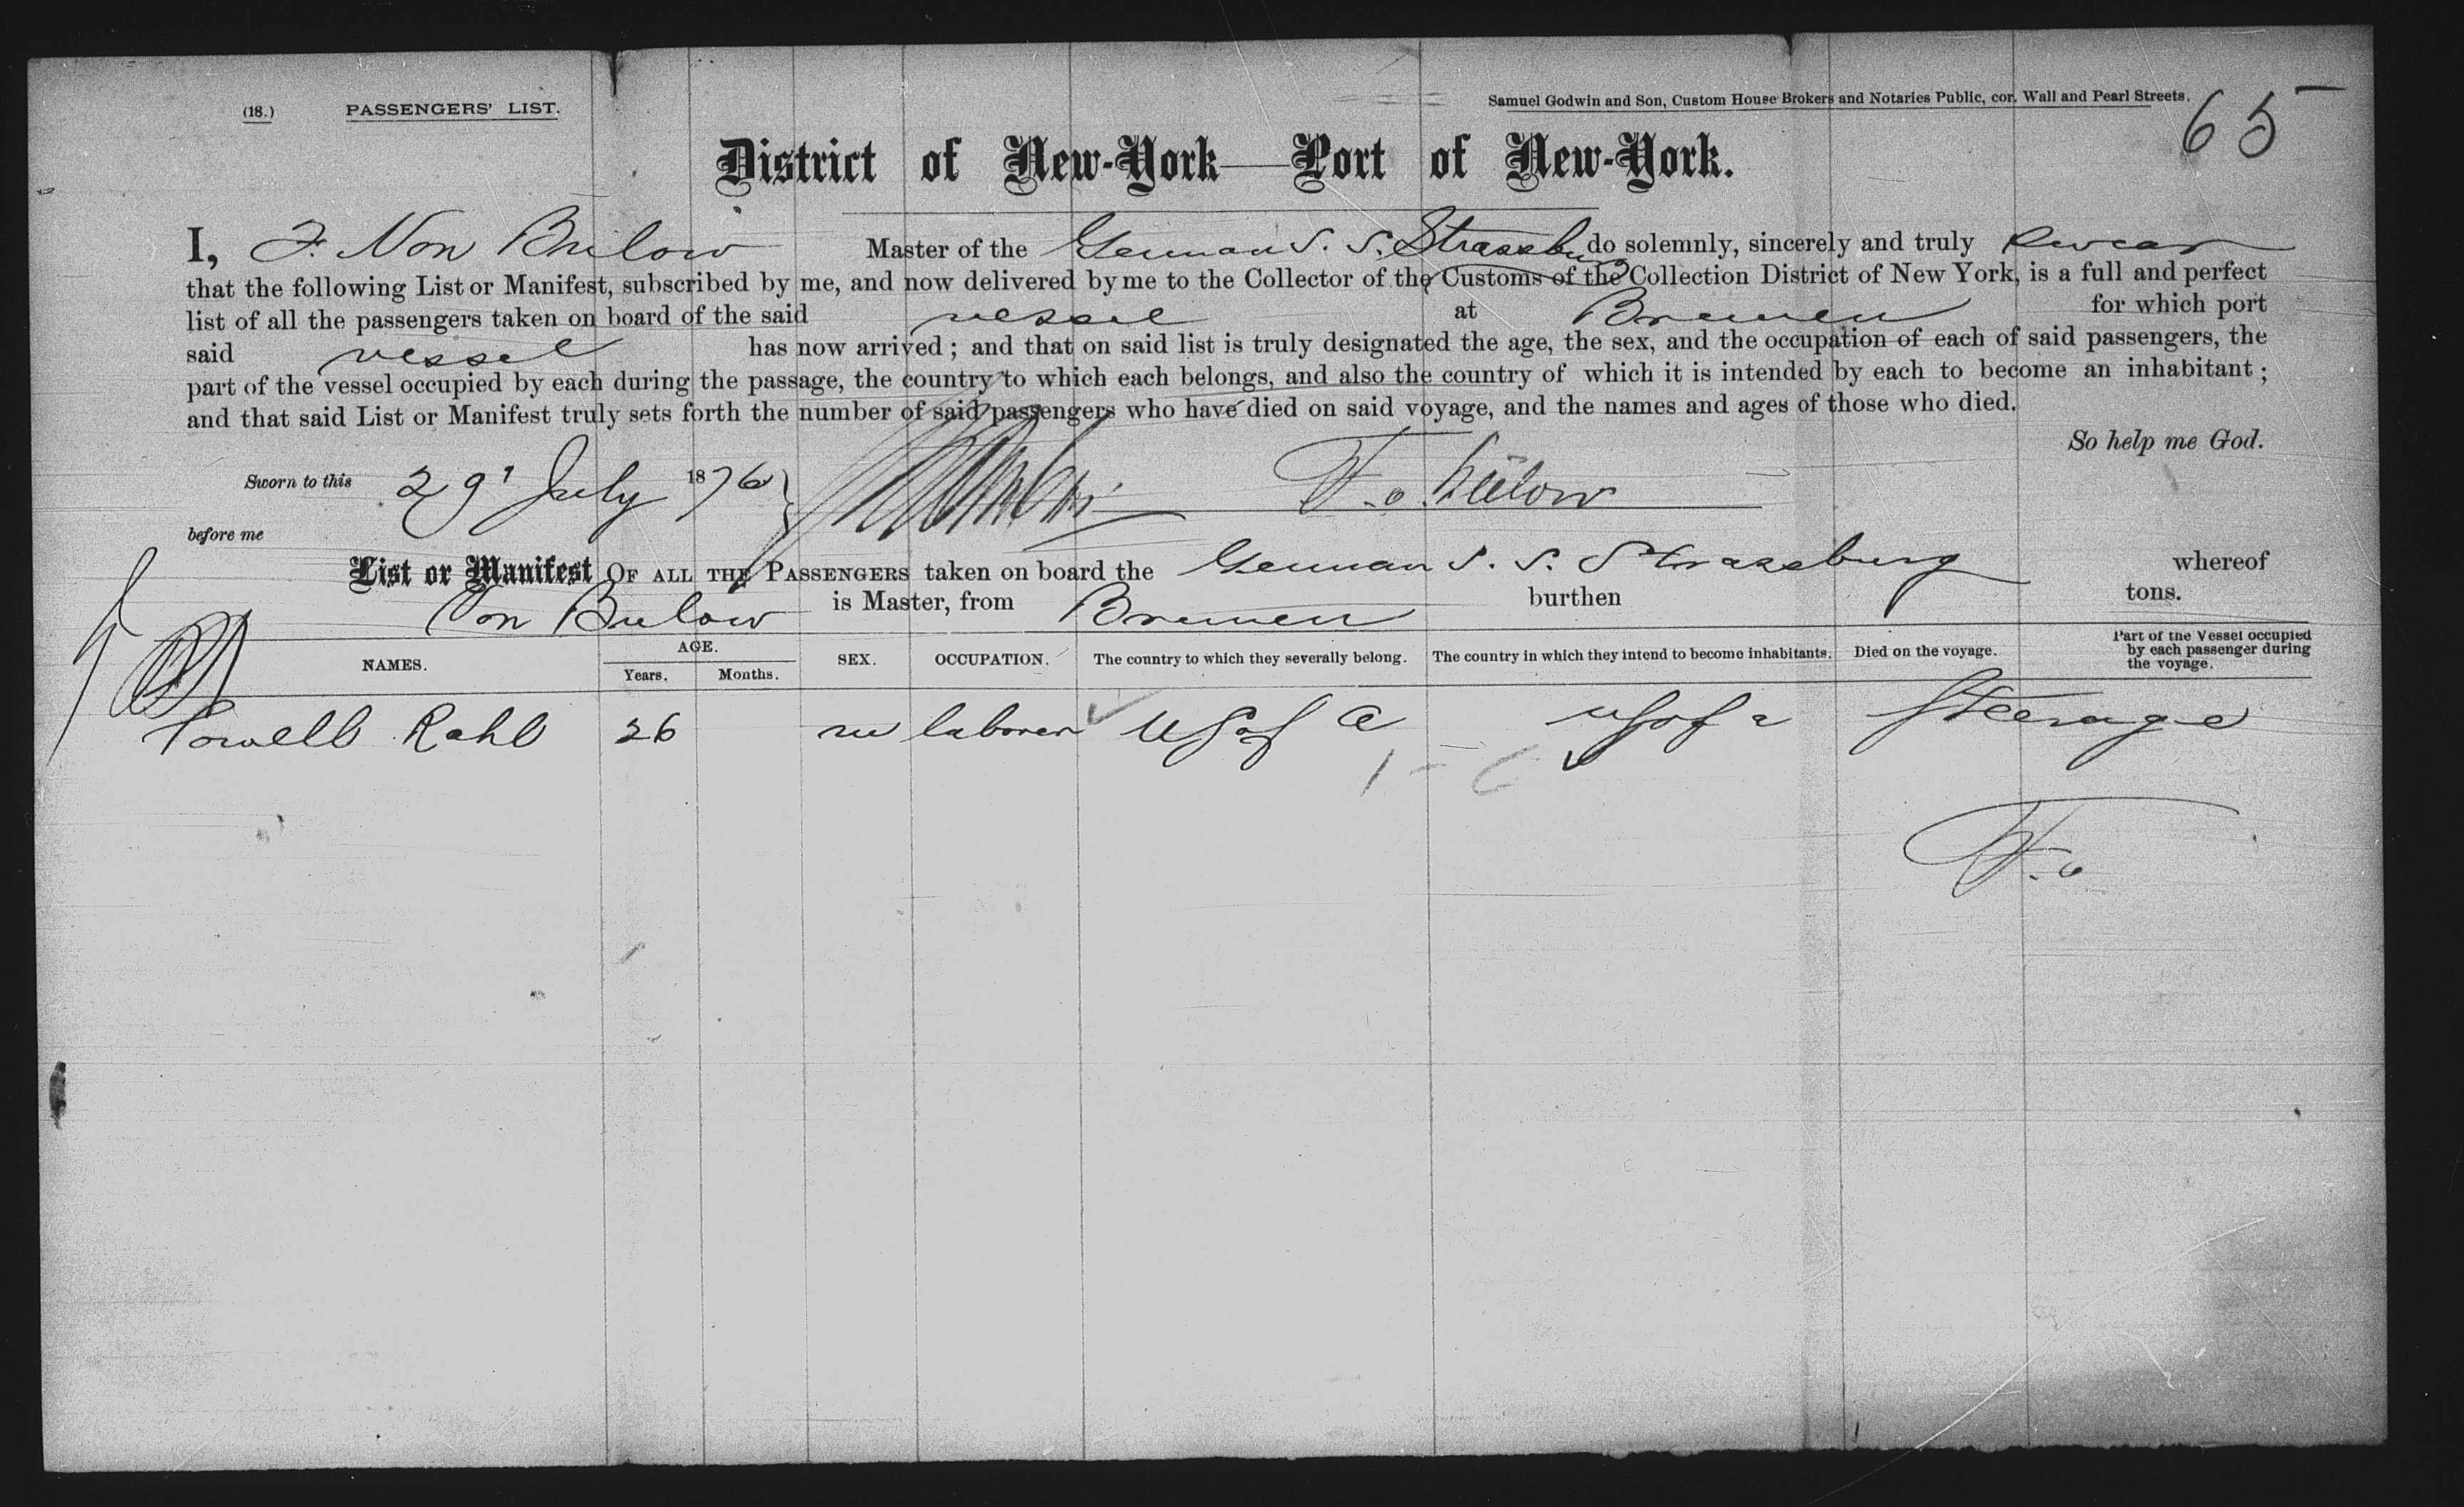 (18.) PASSENGERS' LIST. Samuel Godwin and Son, Custom House Brokers and Notaries Public, cor. Wall and Pearl Streets.
65
District of New-York—Port of New-York.
I, F. Von Bulow Master of the German S. S. Strassburg do solemnly, sincerely and truly swear
that the following List or Manifest, subscribed by me, and now delivered by me to the Collector of the Customs of the Collection District of New York, is a full and perfect
list of all the passengers taken on board of the said vessel at Bremen for which port
said vessel has now arrived; and that on said list is truly designated the age, the sex, and the occupation of each of said passengers, the
part of the vessel occupied by each during the passage, the country to which each belongs, and also the country of which it is intended by each to become an inhabitant;
and that said List or Manifest truly sets forth the number of said passengers who have died on said voyage, and the names and ages of those who died.
So help me God.
Sworn to this 29' July 1876 F. v. Bülow
before me
List or Manifest OF ALL THE PASSENGERS taken on board the German S. S. Strassburg whereof
Von Bulow is Master, from Bremen burthen tons.
NAMES. AGE. Years. Months. SEX. OCCUPATION. The country to which they severally belong. The country in which they intend to become inhabitants. Died on the voyage. Part of the Vessel occupied by each passenger during the voyage.
Powell Rahl 26 m laborer US of A US of A Steerage
F. v.